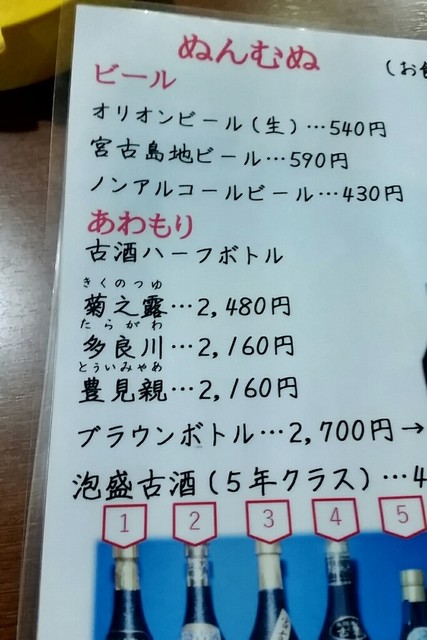 ぬんむぬ
(お
ビール
オリオンビール(生)…540円
宮古島地ビール…590円
ノンアルコールビール…430円
あわもり
古酒ハーフボトル
きくのつゆ
菊之露…2,480円
たらがわ
多良川…2,160円
とぅいみゃあ
豊見親…2,160円
ブラウンボトル…2,700円→
泡盛古酒(5年クラス)…4
1 2 3 4 5